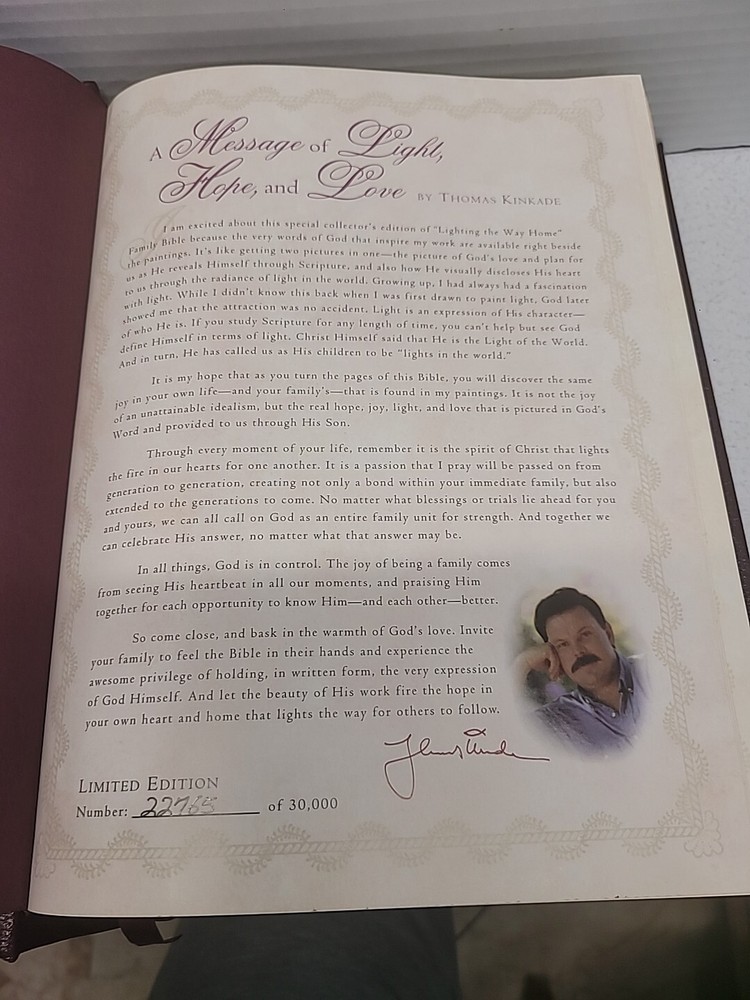 A Message of Light,
Hope, and Love BY THOMAS KINKADE
I am excited about this special collector's edition of "Lighting the Way Home"
Family Bible because the very words of God that inspire my work are available right beside
the paintings. It's like getting two pictures in one—the picture of God's love and plan for
us as He reveals Himself through Scripture, and also how He visually discloses His heart
to us through the radiance of light in the world. Growing up, I had always had a fascination
with light. While I didn't know this back when I was first drawn to paint light, God later
showed me that the attraction was no accident. Light is an expression of His character—
of who He is. If you study Scripture for any length of time, you can't help but see God
define Himself in terms of light. Christ Himself said that He is the Light of the World.
And in turn, He has called us as His children to be "lights in the world."
It is my hope that as you turn the pages of this Bible, you will discover the same
joy in your own life—and your family's—that is found in my paintings. It is not the joy
of an unattainable idealism, but the real hope, joy, light, and love that is pictured in God's
Word and provided to us through His Son.
Through every moment of your life, remember it is the spirit of Christ that lights
the fire in our hearts for one another. It is a passion that I pray will be passed on from
generation to generation, creating not only a bond within your immediate family, but also
extended to the generations to come. No matter what blessings or trials lie ahead for you
and yours, we can all call on God as an entire family unit for strength. And together we
can celebrate His answer, no matter what that answer may be.
In all things, God is in control. The joy of being a family comes
from seeing His heartbeat in all our moments, and praising Him
together for each opportunity to know Him—and each other—better.
So come close, and bask in the warmth of God's love. Invite
your family to feel the Bible in their hands and experience the
awesome privilege of holding, in written form, the very expression
of God Himself. And let the beauty of His work fire the hope in
your own heart and home that lights the way for others to follow.
LIMITED EDITION
Number: 22765 of 30,000